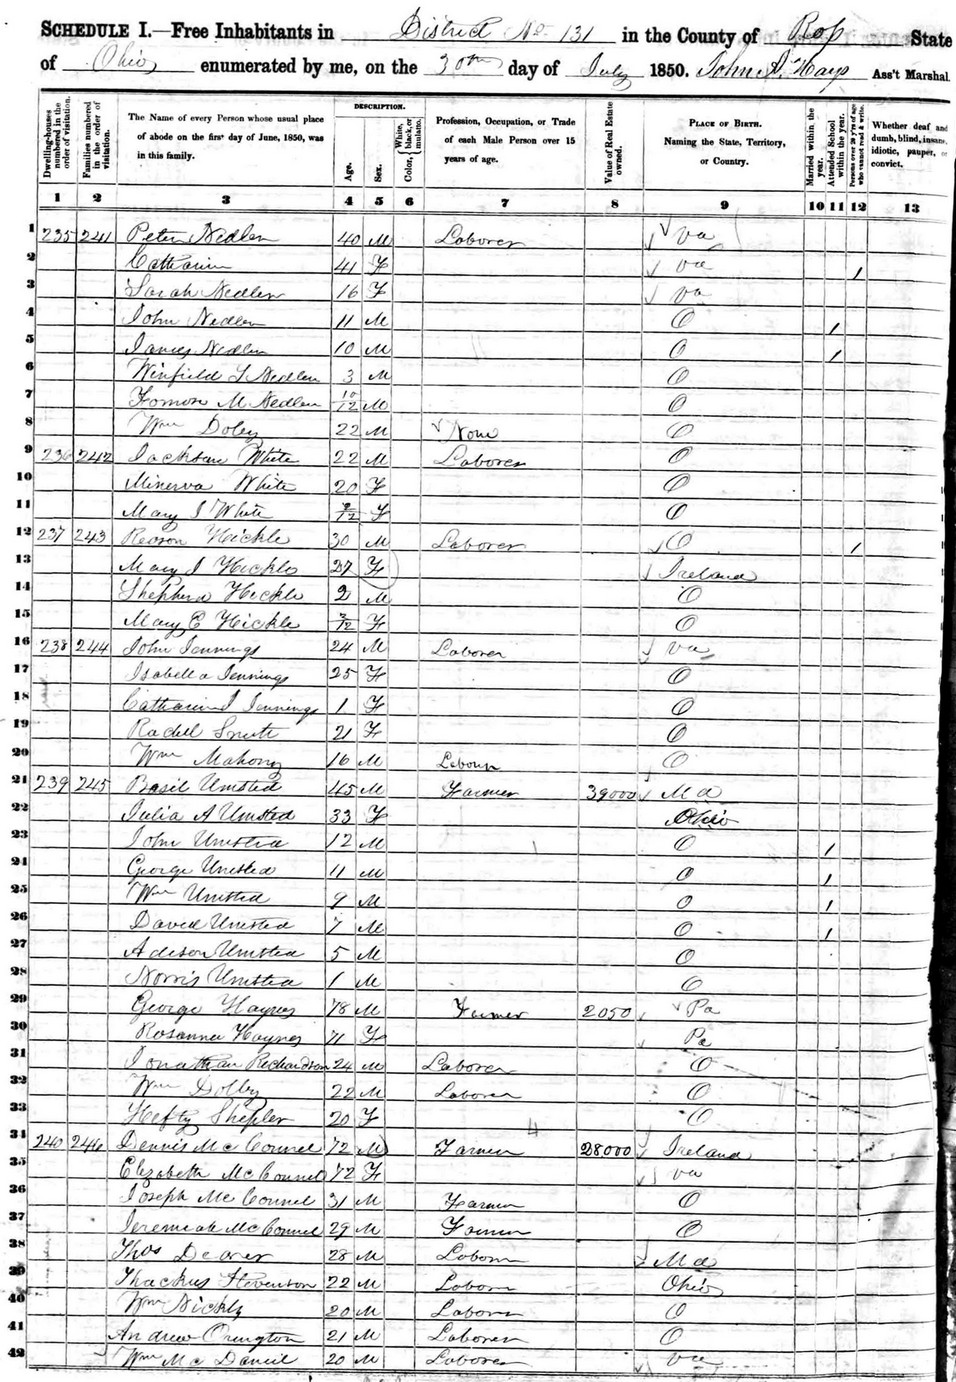 SCHEDULE I.—Free Inhabitants in District No 131 in the County of Ross State
of Ohio enumerated by me, on the 30th day of July 1850. John Hays Ass't Marshal.
Dwelling-houses numbered in the order of visitation.
Families numbered in the order of visitation.
The Name of every Person whose usual place of abode on the first day of June, 1850, was in this family.
DESCRIPTION.
Age.
Sex.
Color, { White, black, or mulatto.
Profession, Occupation, or Trade of each Male Person over 15 years of age.
Value of Real Estate owned.
PLACE OF BIRTH. Naming the State, Territory, or Country.
Married within the year.
Attended School within the year.
Persons over 20 y'rs of age who cannot read & write.
Whether deaf and dumb, blind, insane, idiotic, pauper, or convict.
1 2 3 4 5 6 7 8 9 10 11 12 13
1 235 241 Peter Nedlen 40 M Laborer Va
2 Catharine 41 F Va 1
3 Sarah Nedlen 16 F Va
4 John Nedlen 11 M O 1
5 James Nedlen 10 M O 1
6 Winfield S Nedlen 3 M O
7 M Nedlen 10/12 M O
8 Wm Doley 22 M None O
9 236 242 Jackson White 22 M Laborer O
10 Minerva White 20 F O
11 Mary J White F O
12 237 243 Reason Hickle 30 M Laborer O 1
13 Mary J Hickle 27 F Ireland
14 Shepherd Hickle 2 M O
15 Mary E Hickle F O
16 238 244 John Jennings 24 M Laborer Va
17 Isabella Jennings 25 F O
18 Catharine J Jennings 1 F O
19 Rachel Smith 21 F O
20 Wm Mahony 16 M Laborer O
21 239 245 Basil Umsted 45 M Farmer 39000 Md
22 Julia A Umsted 33 F Ohio
23 John Umsted 12 M O 1
24 George Umsted 11 M O 1
25 Wm Umsted 9 M O 1
26 David Umsted 7 M O 1
27 Adison Umsted 5 M O
28 Norris Umsted 1 M O
29 George Haynes 78 M Farmer 2050 Pa
30 Rosanna Haynes 71 F Pa
31 Jonathan Richardson 24 M Laborer O
32 Wm Dolby 22 M Laborer O
33 Hefty Shepler 20 F O
34 240 246 Dennis McConnel 72 M Farmer 28000 Ireland
35 Elizabeth McConnel 72 F Va
36 Joseph McConnel 31 M Farmer O
37 Jeremiah McConnel 29 M Farmer O
38 Thos Dearer 28 M Laborer Md
39 Stevenson 22 M Laborer Ohio
40 Wm Nickly 20 M Laborer O
41 Andrew 21 M Laborer O
42 Wm McDaniel 20 M Laborer Va